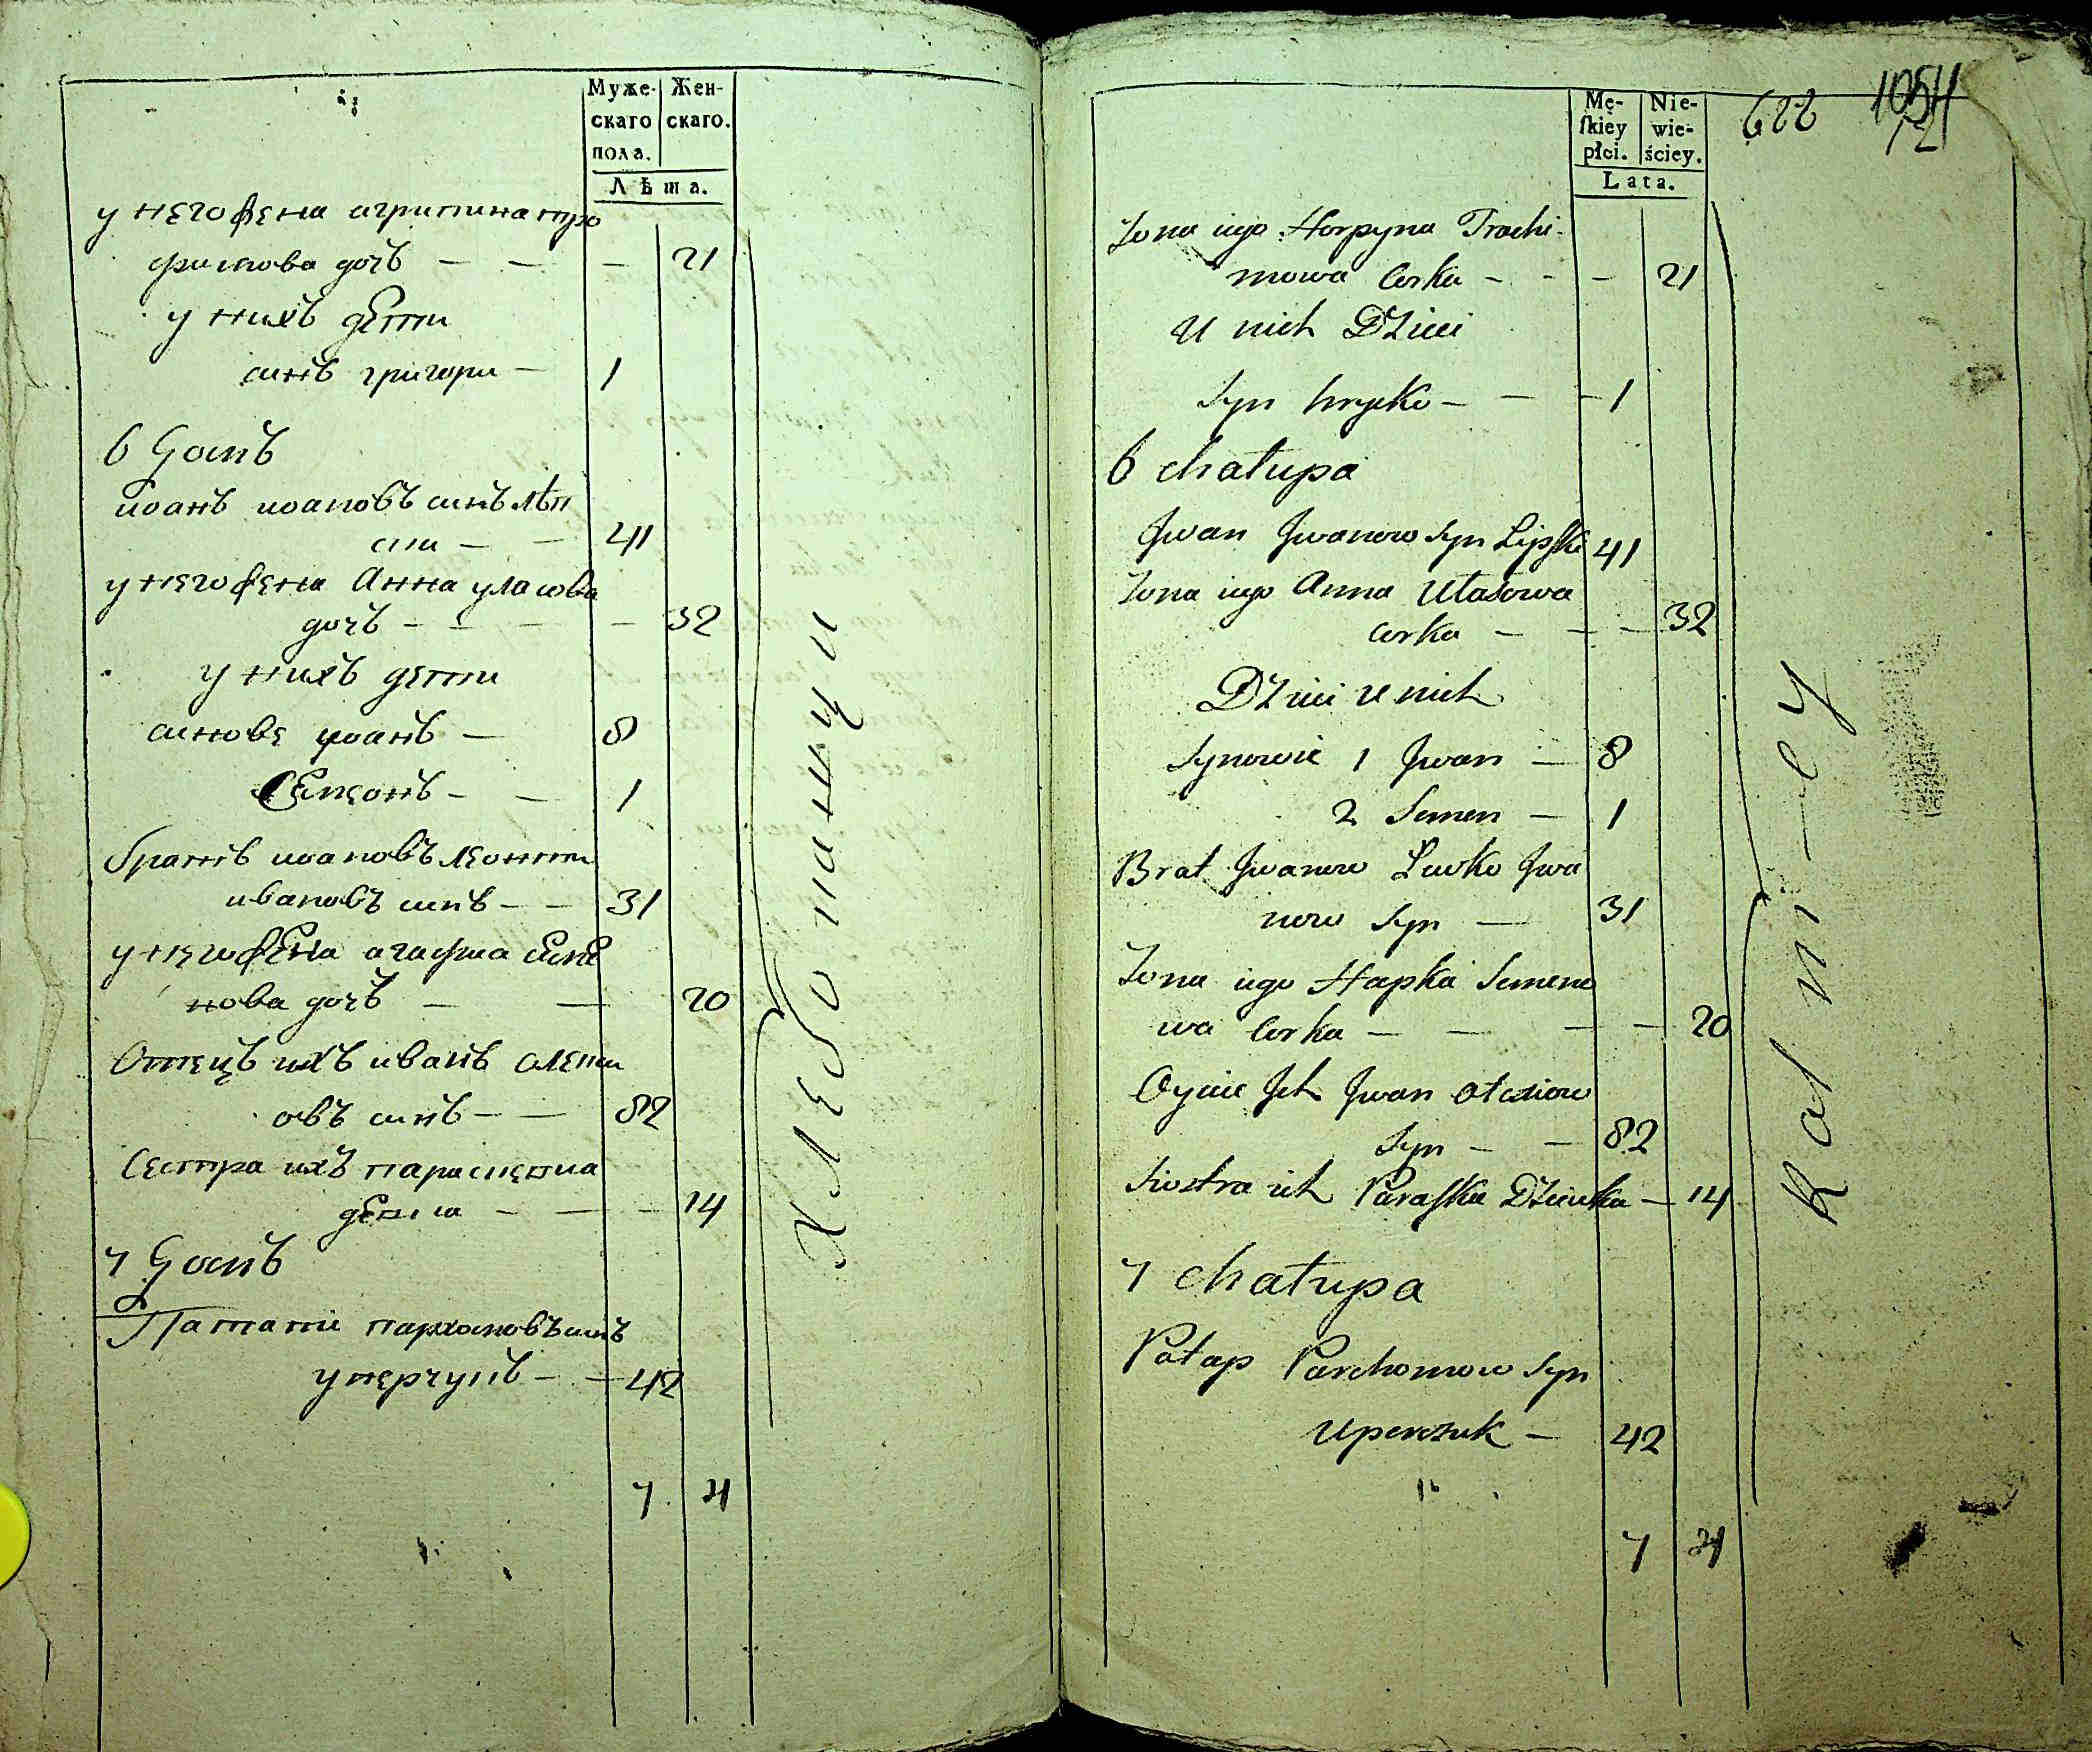 Муже-
скаго
пола.
Жен-
скаго.
Лѣта.
у него жена агрипина тро
фимова дочъ — — — 21
у нихъ дети
синъ григори — 1
6 Домъ
иоанъ иоановъ синъ лѣп
ски — — 41
у него жена Анна уласова
дочъ — — — — 32
у нихъ дети
синове иоанъ — 8
Семионъ — — 1
братъ иоановъ леонти
ивановъ синъ — — 31
у него жена агафиа семе
нова дочъ — — 20
Отецъ ихъ иванъ олекси
овъ синъ — — 82
Сестра ихъ параскевиа
— — — 14
7 Домъ
Патапи пархомовъ синъ
уперчукъ — — 42
7 4
Хлебопашци
Mę-
skiey
płci.
Nie-
wie-
ściey.
Lata.
622
1054
12
Żona iego Horpyna Trochi-
mowa Corka — - — 21
U nich Dzieci
Syn hryćko — — — 1
6 chałupa
Jwan Jwanow Syn Lipski 41
Żona iego Anna Ułasowa
Corka — — — 32
Dzieci u nich
Synowie 1 Jwan — 8
2 Semen — 1
Brat Jwanow Lewko Jwa
now Syn — 31
Żona iego Hapka Semeno
wa Corka — — — — 20
Oyciec Jch Jwan
Syn — — 82
Siostra ich Paraska Dziewka — 14
7 chałupa
Potap Parchomow Syn
Uperczuk — 42
7 4
Rolni-cy